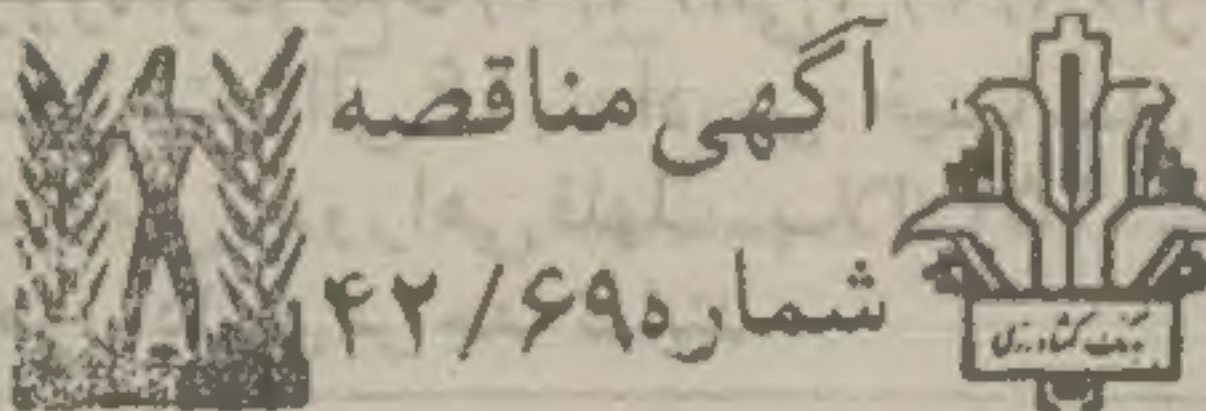 آگهی مناقصه
شماره ۴۲/۶۹
بانک کشاورزی